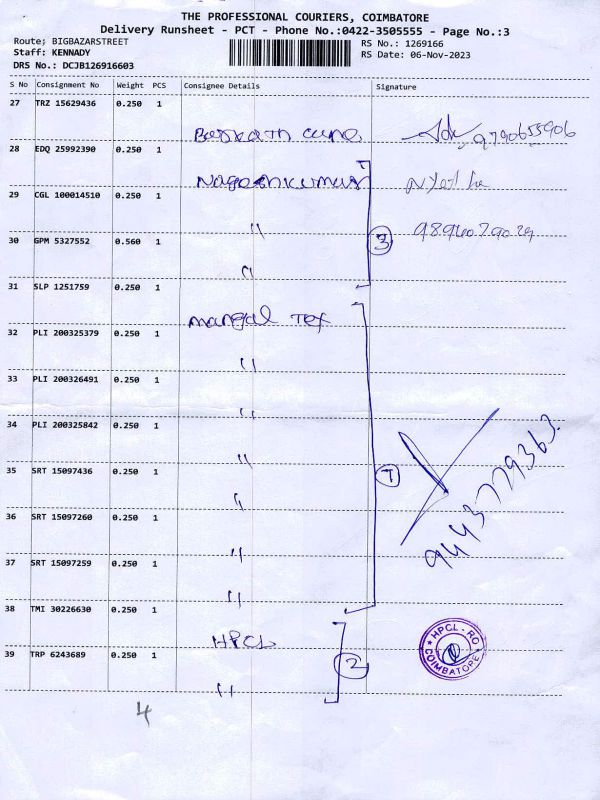 THE PROFESSIONAL COURIERS, COIMBATORE
Delivery Runsheet - PCT - Phone No.:0422-3505555 - Page No.:3
Route; BIGBAZARSTREET
RS No.: 1269166
Staff: KENNADY
RS Date: 06-Nov-2023
DRS No.: DCJB126916603
S No Consignment No Weight PCS Consignee Details Signature
27 TRZ 15629436 0.250 1
9790655906
28 EDQ 25992390 0.250 1
29 CGL 100014510 0.250 1
"
3
30 GPM 5327552 0.560 1
"
31 SLP 1251759 0.250 1
mangal Tex
32 PLI 200325379 0.250 1
"
33 PLI 200326491 0.250 1
"
34 PLI 200325842 0.250 1
"
7
9443779363
35 SRT 15097436 0.250 1
"
36 SRT 15097260 0.250 1
"
37 SRT 15097259 0.250 1
"
38 TMI 30226630 0.250 1
HPCL
2
HPCL-RO
COIMBATORE
39 TRP 6243689 0.250 1
"
4